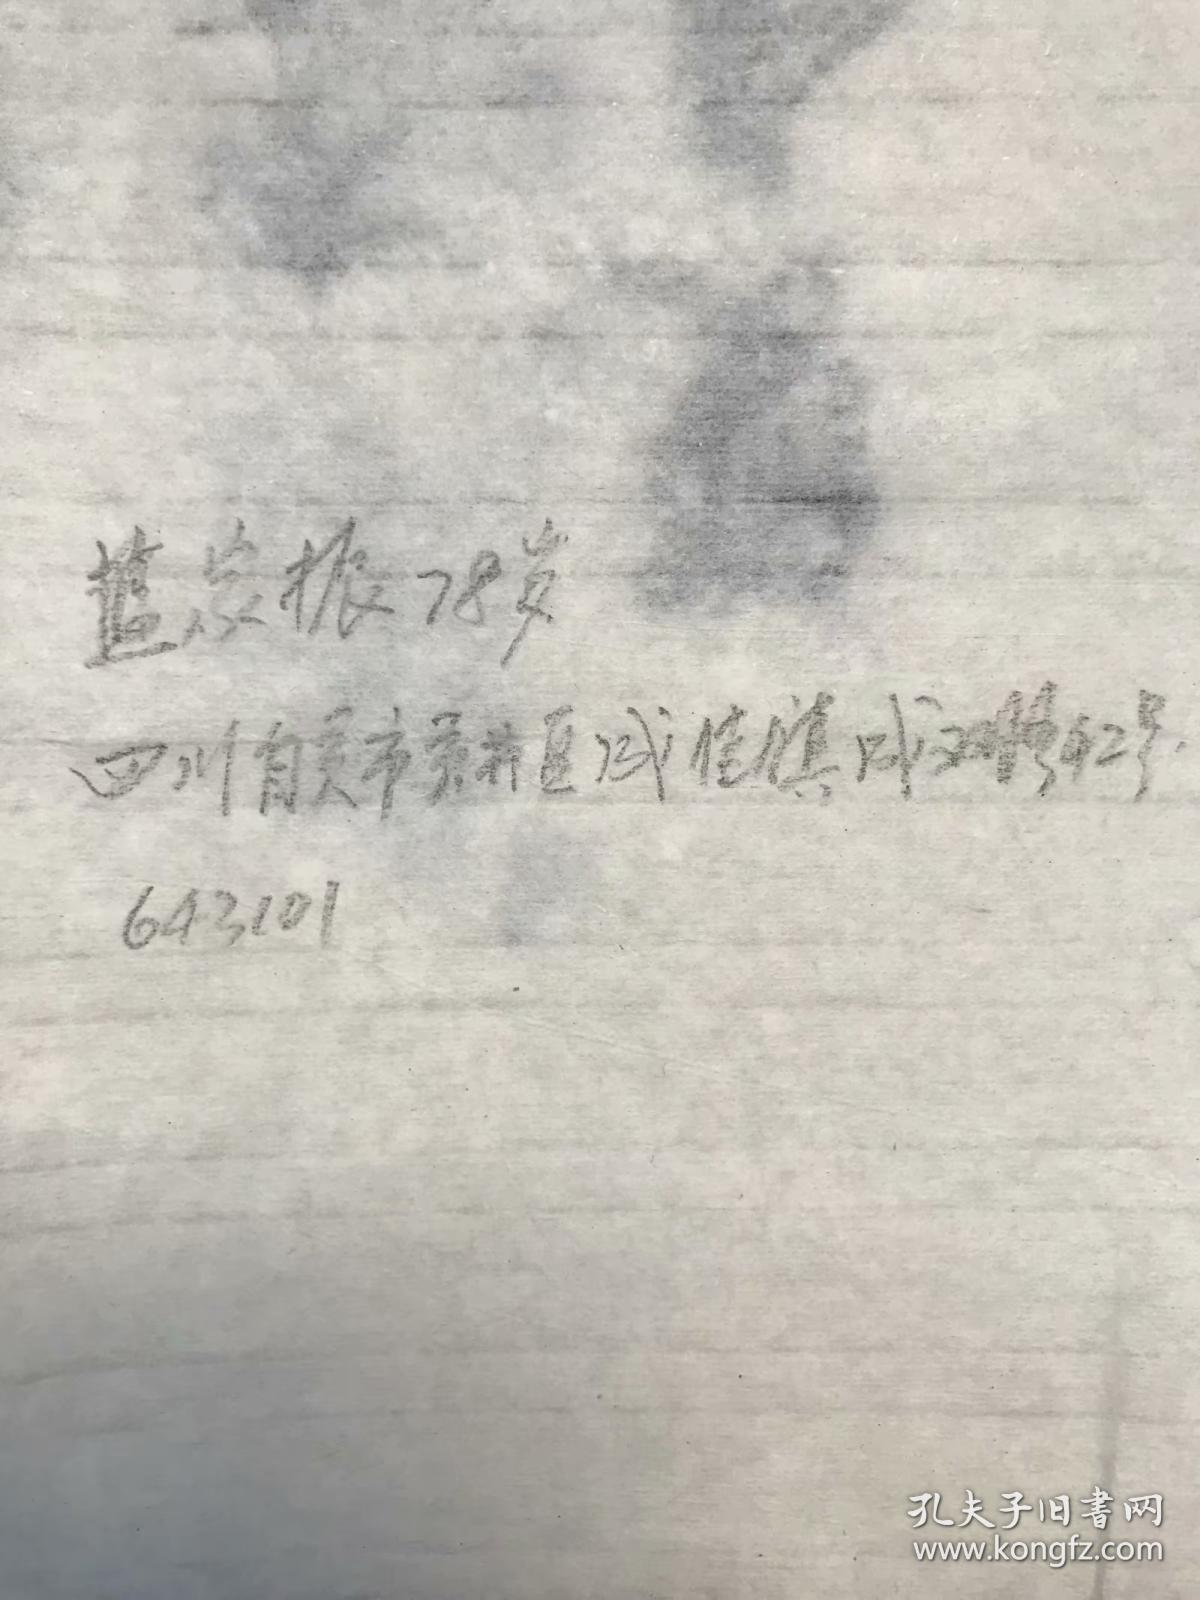 蓝家振78岁
四川自贡市贡井区成佳镇成 42号
643101
孔夫子旧书网
www.kongfz.com